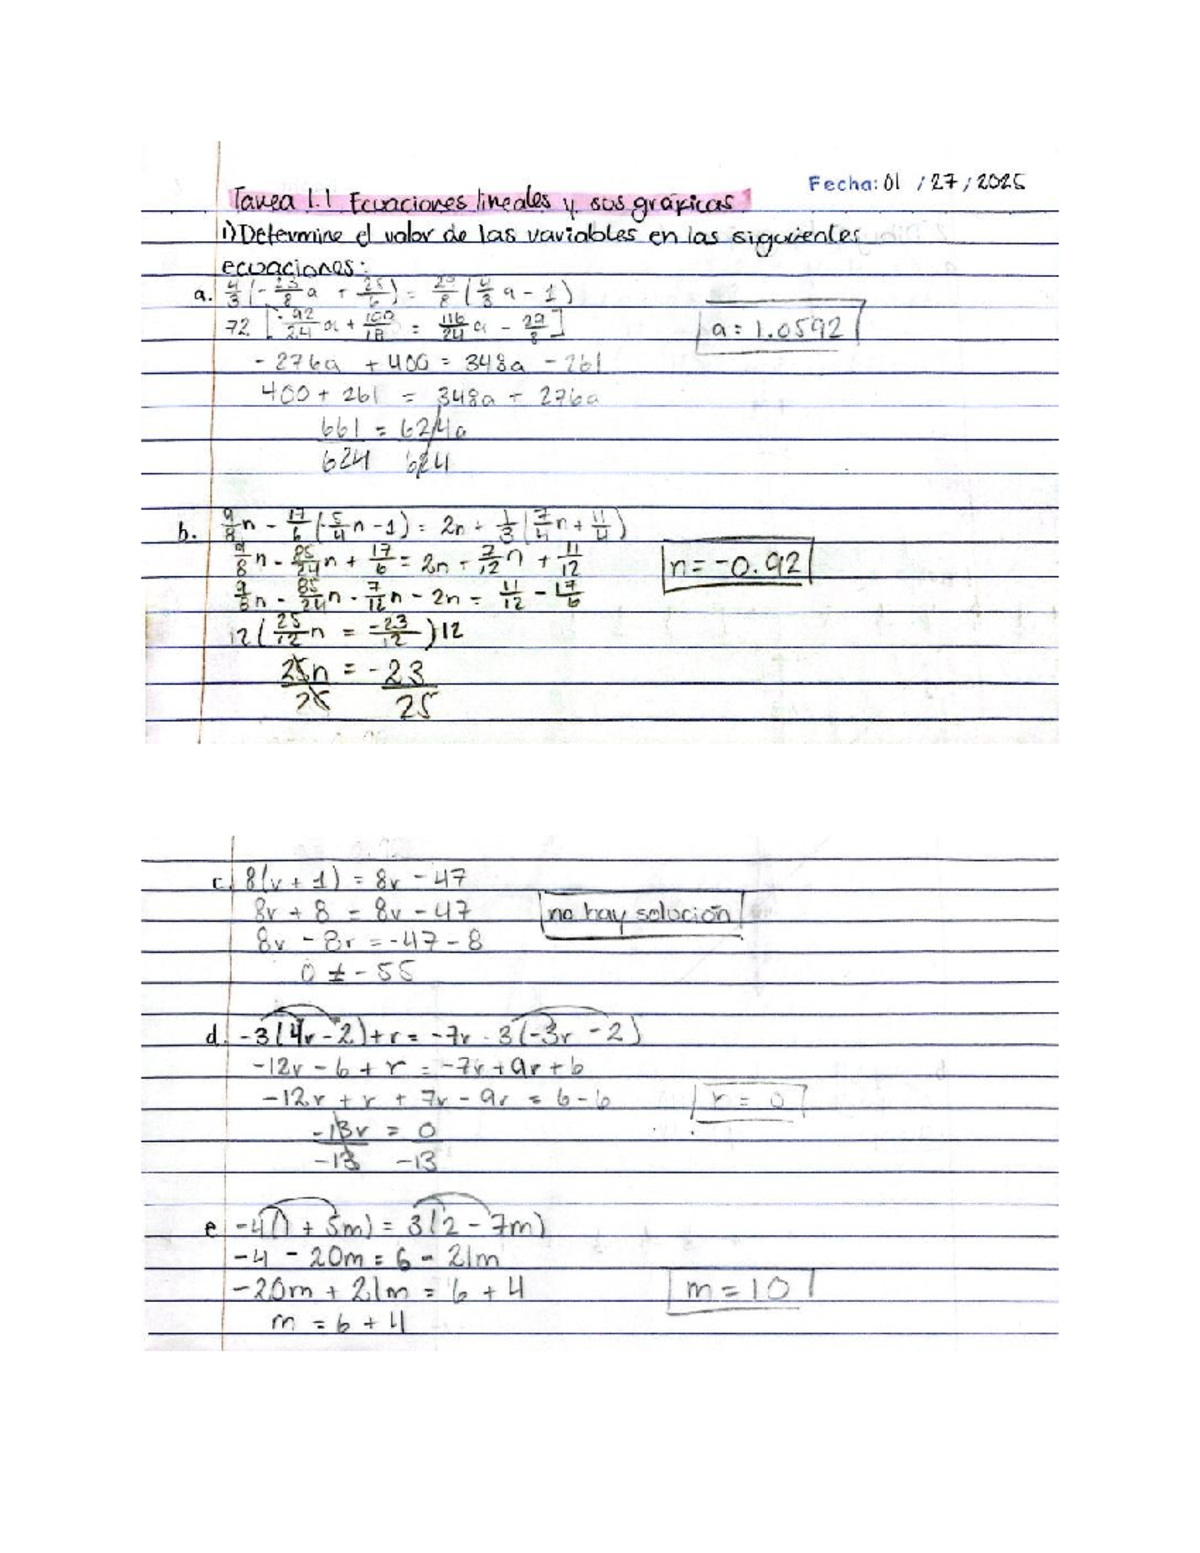 Fecha: 01 / 27 / 2025
Tarea 1.1 Ecuaciones lineales y sus gráficas
1) Determine el valor de las variables en las siguientes
ecuaciones:
a. 4/3 (-23/8 a + 25/6) = 29/8 (4/3 a - 1)
72 [-92/24 a + 100/18 = 116/24 a - 29/8]
a = 1.0592
- 276a + 400 = 348a - 261
400 + 261 = 348a + 276a
661 = 624a
624 624
b. 9/8 n - 17/6 (5/4 n - 1) = 2n + 1/3 (7/4 n + 11/4)
9/8 n - 85/24 n + 17/6 = 2n + 7/12 n + 11/12
n = -0.92
9/8 n - 85/24 n - 7/12 n - 2n = 11/12 - 17/6
12 (25/12 n = -23/12) 12
25n = -23
25 25
c. 8(v + 1) = 8v - 47
8v + 8 = 8v - 47
no hay solución
8v - 8v = -47 - 8
0 ≠ - 55
d. -3(4r - 2) + r = -7r - 3(-3r - 2)
-12r - 6 + r = -7r + 9r + 6
-12r + r + 7r - 9r = 6 - 6
r = 0
-13r = 0
-13 -13
e -4(1 + 5m) = 3(2 - 7m)
-4 - 20m = 6 - 21m
-20m + 21m = 6 + 4
m = 10
m = 6 + 4